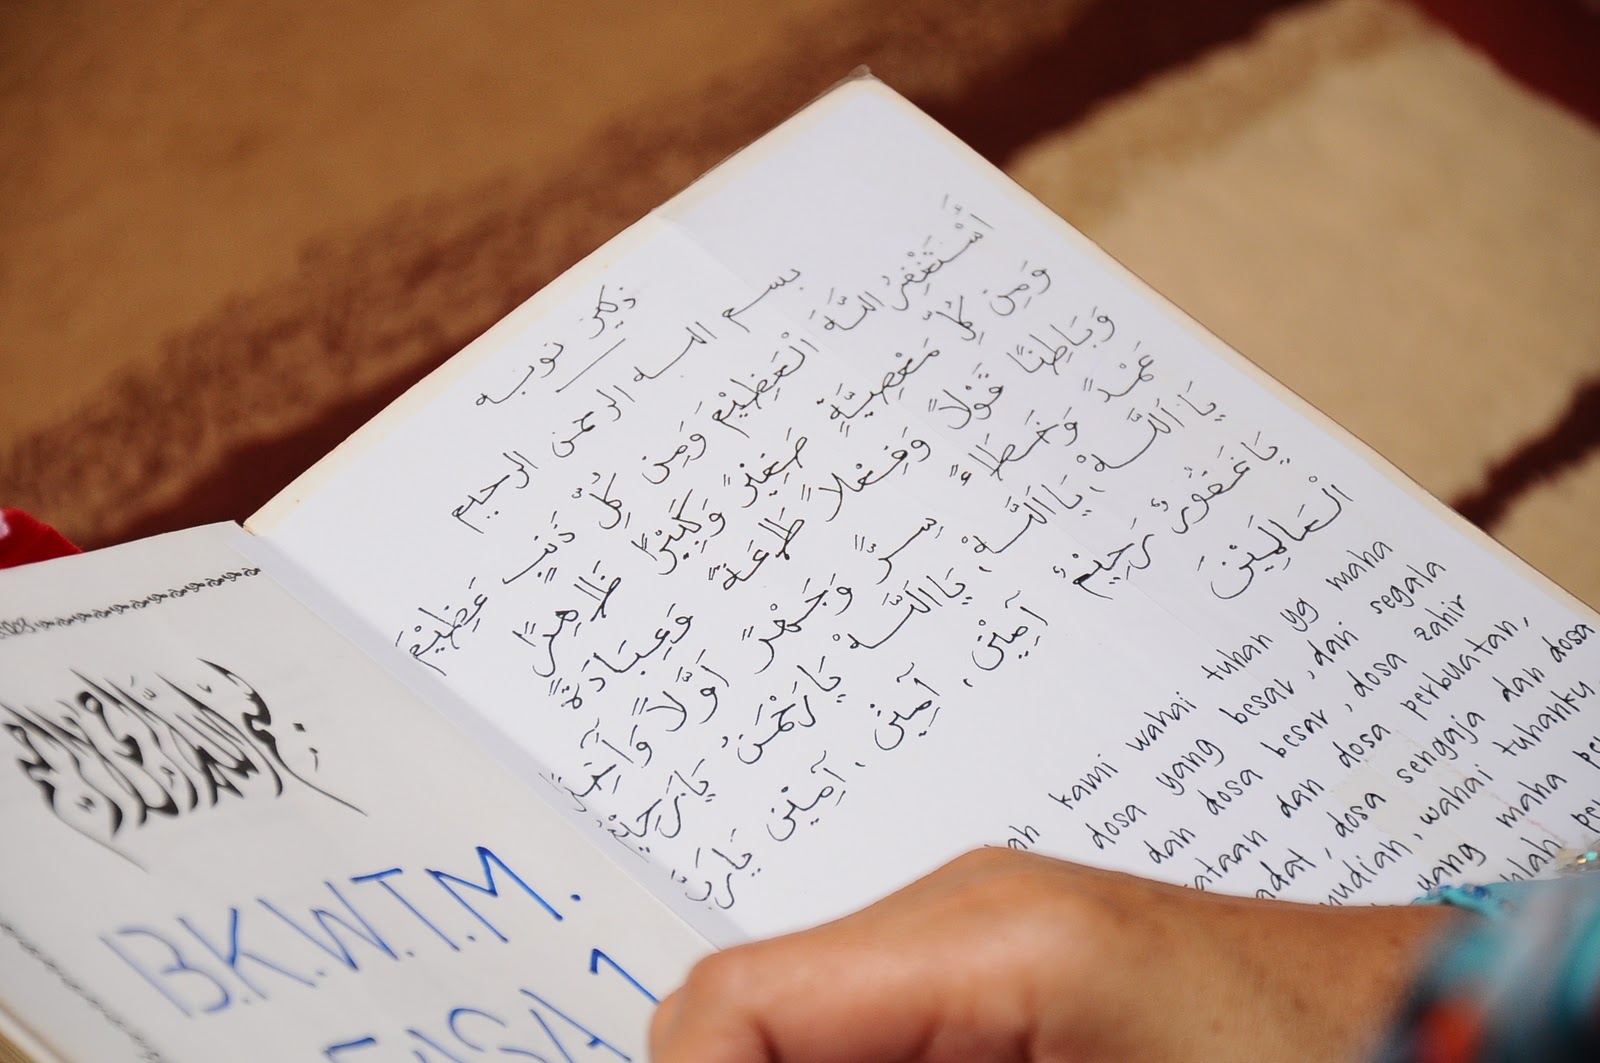 ذكير توبه
بسم الله الرحمن الرحيم
أَسْتَغْفِرُ اللّٰهَ الْعَظِيْمَ وَمِن كُلِّ ذَنبٍ عَظِيْمَ
وَمِن كُلِّ مَعْصِيَةٍ صَغِيْرً وَكَبِيْرًا ظَاهِرًا
وَبَاطِنًا قَوْلاً وَفِعْلاً طَاعَةً وَعِبَادَةً
عَمْدً وَخَطَاءً سِرً وَجَهْرً اَوَّلاً وَآخِرً
يَا اَللّٰهْ، يَا اَللّٰهْ، يَا اَللّٰهْ يَارَحْمَنُ يَارَحِيْمُ
يَاغَفُوْرُ رَحِيْمُ آمِيْن، آمِيْن، آمِيْن يَارَبَّ
الْعَالَمِيْنَ
kami wahai tuhan yg maha
dosa yang besar, dan segala
dan dosa besar, dosa zahir
dan dosa perbuatan,
dosa sengaja dan dosa
wahai tuhanku
yang maha
بسم الله الرحمن الرحيم
B.K.W.T.M.
FASA 1